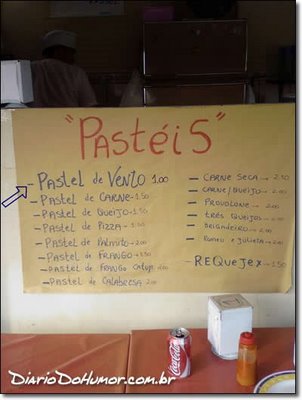 "PASTÉIS"
- PASTEL de VENTO 1.00
- PASTEL de CARNE - 1.50
- PASTEL de QUEIJO - 1.50
- PASTEL de PIZZA - 1.50
- PASTEL de PALMITO - 2.00
- PASTEL de FRANGO - 1.50
- PASTEL de FRANGO Catup. 2.00
- PASTEL de CALABRESA 2.00
- CARNE SECA - 2.50
- CARNE/QUEIJO - 2.00
- PROVOLONE - 2.00
- TRÊS QUEIJOS - 2.00
- BRIGADEIRO - 2.00
- Romeu e Julieta - 2.00
- REQUEJEX - 1.50
Coca-Cola
DIARIODOHUMOR.COM.BR